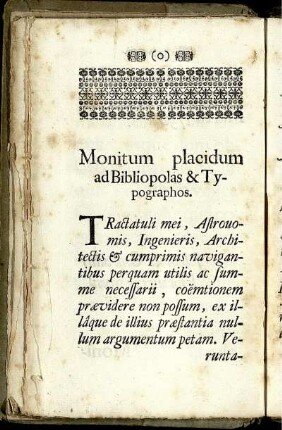 (0)
Monitum placidum
ad Bibliopolas & Ty-
pographos.
TRactatuli mei, Astrouo-
mis, Ingenieris, Archi-
tectis & cumprimis navigan-
tibus perquam utilis ac sum-
me necessarii, coëmtionem
prævidere non possum, ex il-
lâque de illius præstantia nul-
lum argumentum petam. Ve-
runta-